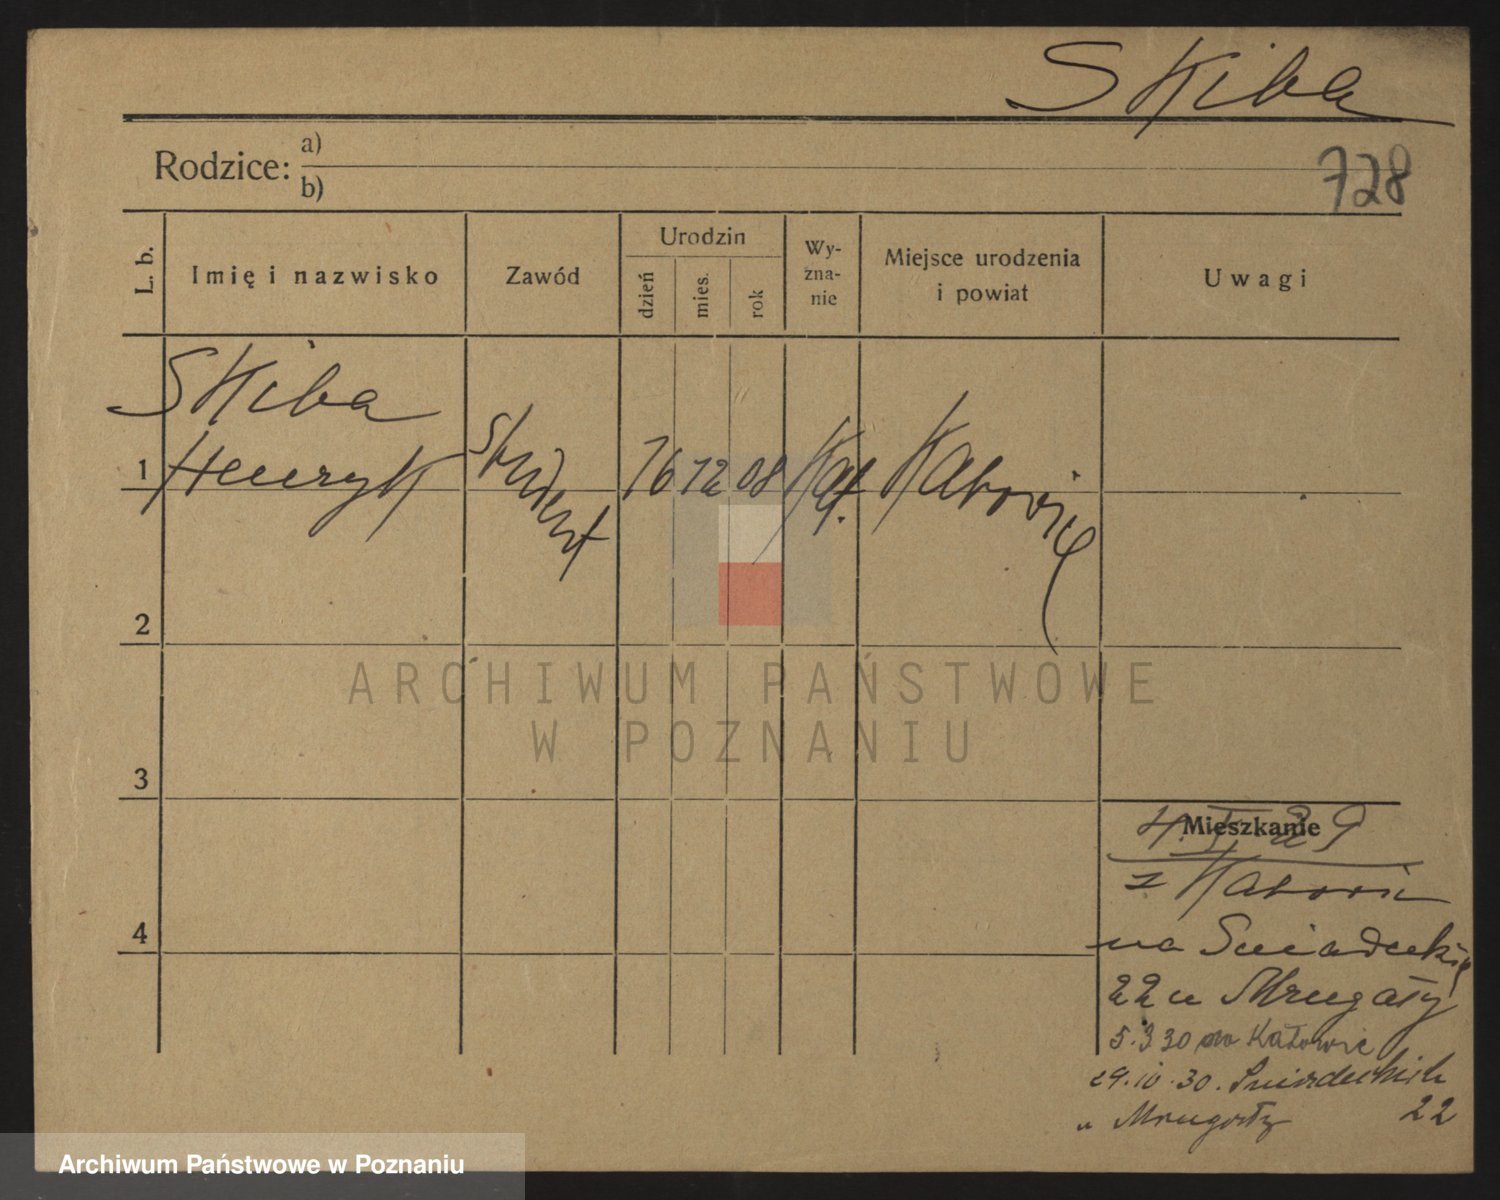 Skiba
Rodzice: a)
b)
728
L. b.
Imię i nazwisko
Zawód
Urodzin
dzień
mies.
rok
Wy-
zna-
nie
Miejsce urodzenia
i powiat
Uwagi
Skiba
1 Henryk Student 16 12 08 Kat. Katowice
2
3
4
Mieszkanie
z Katowic
na Śniadeckich
22 u Mrugały
5.3 30 do Katowic
29.10.30. Śniadeckich
22
u Mrugały
ARCHIWUM PAŃSTWOWE
W POZNANIU
Archiwum Państwowe w Poznaniu